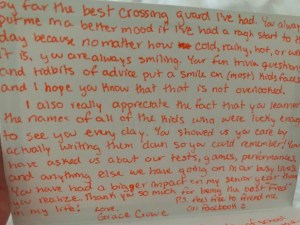 by far the best crossing guard I've had. You always
put me in a better mood if I've had a rough start to my
day because no matter how cold, rainy, hot, or
it is, you are always smiling. Your fun trivia questions
and tidbits of advice put a smile on (most) kids faces
and I hope you know that that is not overlooked.
I also really appreciate the fact that you learned
the names of all of the kids who were lucky enough
to see you every day. You showed us you care by
actually writing them down so you could remember! You
have asked us about our tests, games, performances
and anything else we have going on in our busy lives.
You have had a bigger impact on my senior year than
you realize. Thank you so much for being the best
in my life! P.S. feel free to friend me
Love, on facebook
Grace